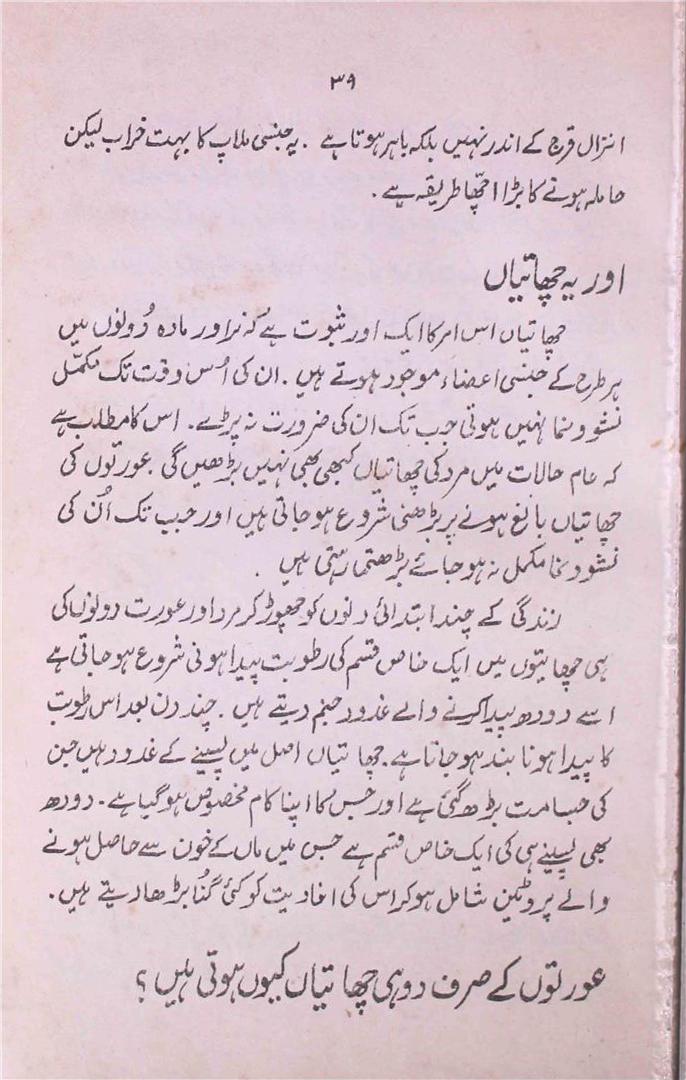 ۳۹
انزال فرج کے اندر نہیں بلکہ باہر ہوتا ہے ۔ یہ جنسی ملاپ کا بہت خراب لیکن
حاملہ ہونے کا بڑا اچھا طریقہ ہے ۔
اور یہ چھاتیاں
چھاتیاں اس امر کا ایک اور ثبوت ہے کہ نر اور مادہ دونوں میں
ہر طرح کے جنسی اعضاء موجود ہوتے ہیں ۔ ان کی اُس وقت تک مکمّل
نشوونما نہیں ہوتی جب تک ان کی ضرورت نہ پڑے ۔ اس کا مطلب ہے
کہ عام حالات میں مرد کی چھاتیاں کبھی بھی نہیں بڑھیں گی ۔ عورتوں کی
چھاتیاں بالغ ہونے پر بڑھنی شروع ہو جاتی ہیں اور جب تک اُن کی
نشوونما مکمل نہ ہو جائے بڑھتی رہتی ہیں ۔
زندگی کے چند ابتدائی دنوں کو چھوڑ کر مرد اور عورت دونوں کی
ہی چھاتیوں میں ایک خاص قسم کی رطوبت پیدا ہونی شروع ہو جاتی ہے
اسے دودھ پیدا کرنے والے غدود جنم دیتے ہیں ۔ چند دن بعد اس رطوبت
کا پیدا ہونا بند ہو جاتا ہے ۔ چھاتیاں اصل میں پسینے کے غدود ہیں جن
کی جسامت بڑھ گئی ہے اور جس کا اپنا کام مخصوص ہو گیا ہے ۔ دودھ
بھی پسینے ہی کی ایک خاص قسم ہے جس میں ماں کے خون سے حاصل ہونے
والے پروٹین شامل ہو کر اس کی افادیت کو کئی گنُا بڑھا دیتے ہیں ۔
عورتوں کے صرف دو ہی چھاتیاں کیوں ہوتی ہیں ؟